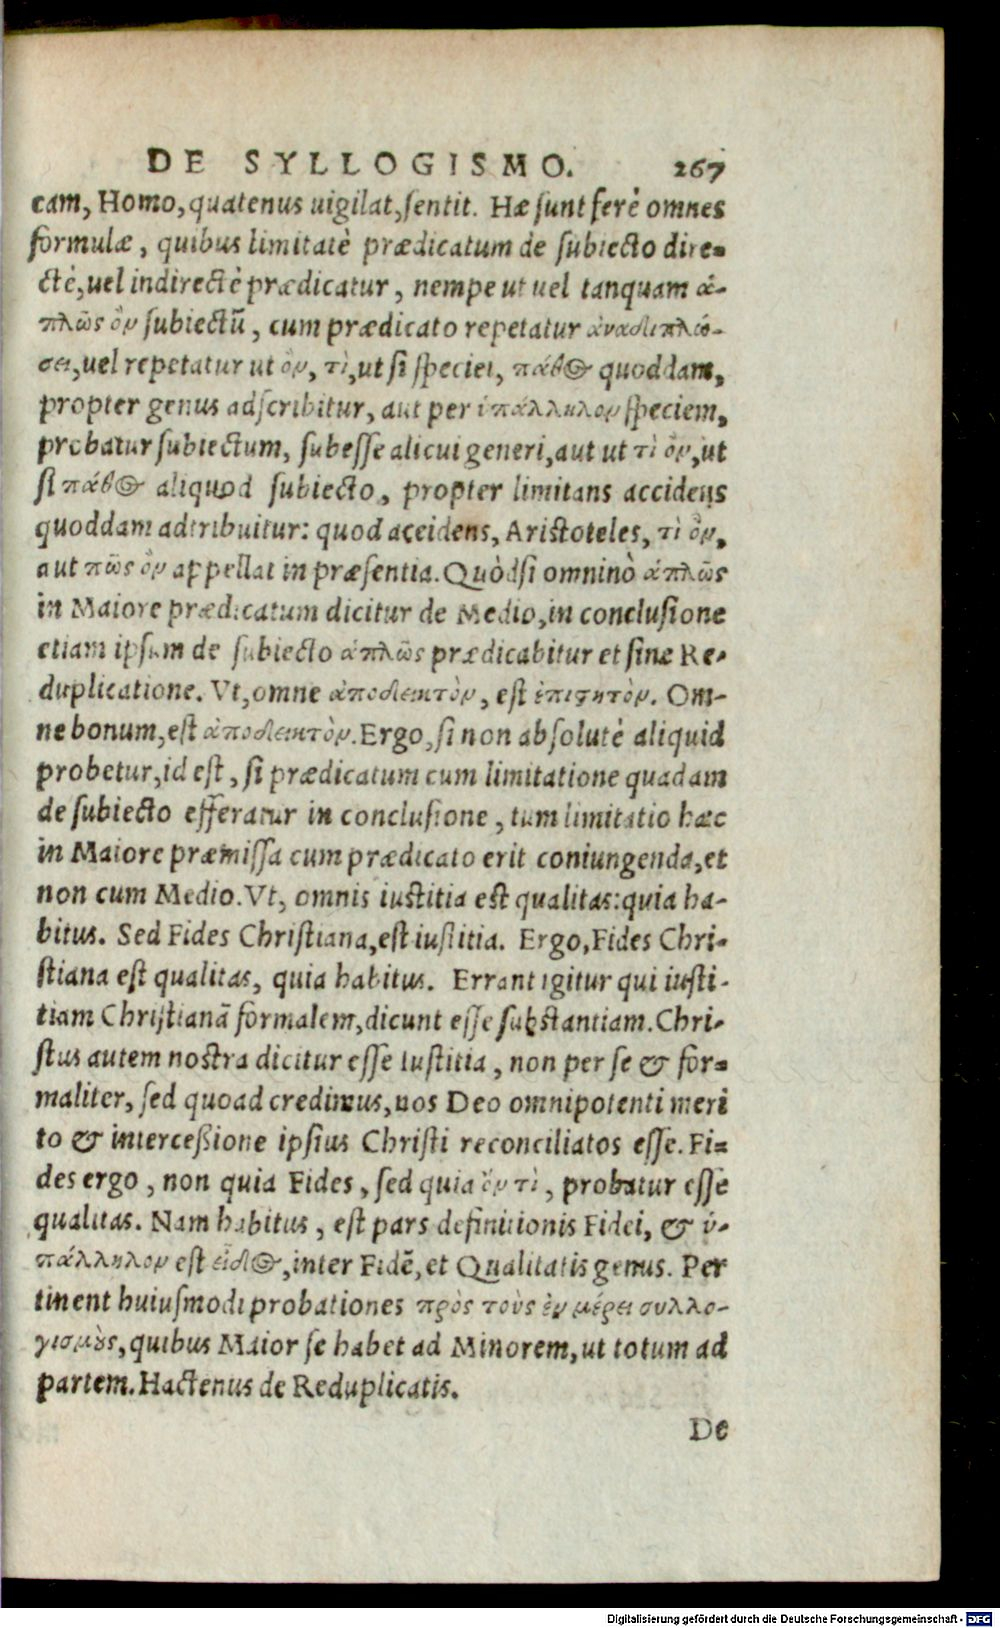 DE SYLLOGISMO. 267
cam, Homo, quatenus uigilat, sentit. Hæ sunt ferè omnes
formulæ, quibus limitatè prædicatum de subiecto dire-
ctè, uel indirectè prædicatur, nempe ut uel tanquam ἁ-
πλῶς ὂν subiectū, cum prædicato repetatur ἀναδιπλώ-
σει, uel repetatur ut ὂν, τὶ, ut si speciei, πάθος quoddam,
propter genus adscribitur, aut per ὑπάλληλον speciem,
probatur subiectum, subesse alicui generi, aut ut τὶ ὂν, ut
si πάθος aliquod subiecto, propter limitans accidens
quoddam adtribuitur: quod accidens, Aristoteles, τὶ ὂν,
aut πῶς ὂν appellat in præsentia. Quòdsi omninò ἁπλῶς
in Maiore prædicatum dicitur de Medio, in conclusione
etiam ipsum de subiecto ἁπλῶς prædicabitur et sine Re-
duplicatione. Vt, omne ἀποδεικτὸν, est ἐπιστητὸν. Om-
ne bonum, est ἀποδεικτὸν. Ergo, si non absolutè aliquid
probetur, id est, si prædicatum cum limitatione quadam
de subiecto efferatur in conclusione, tum limitatio hæc
in Maiore præmissa cum prædicato erit coniungenda, et
non cum Medio. Vt, omnis iustitia est qualitas: quia ha-
bitus. Sed Fides Christiana, est iustitia. Ergo, Fides Chri-
stiana est qualitas, quia habitus. Errant igitur qui iusti-
tiam Christianā formalem, dicunt esse substantiam. Chri-
stus autem nostra dicitur esse Iustitia, non per se & for-
maliter, sed quoad credimus, nos Deo omnipotenti meri
to & intercessione ipsius Christi reconciliatos esse. Fi-
des ergo, non quia Fides, sed quia ὄν τὶ, probatur esse
qualitas. Nam habitus, est pars definitionis Fidei, & ὑ-
πάλληλον est εἶδος, inter Fidē, et Qualitatis genus. Per
tinent huiusmodi probationes πρὸς τοὺς ἐν μέρει συλλο-
γισμοὺς, quibus Maior se habet ad Minorem, ut totum ad
partem. Hactenus de Reduplicatis.
De
Digitalisierung gefördert durch die Deutsche Forschungsgemeinschaft - DFG